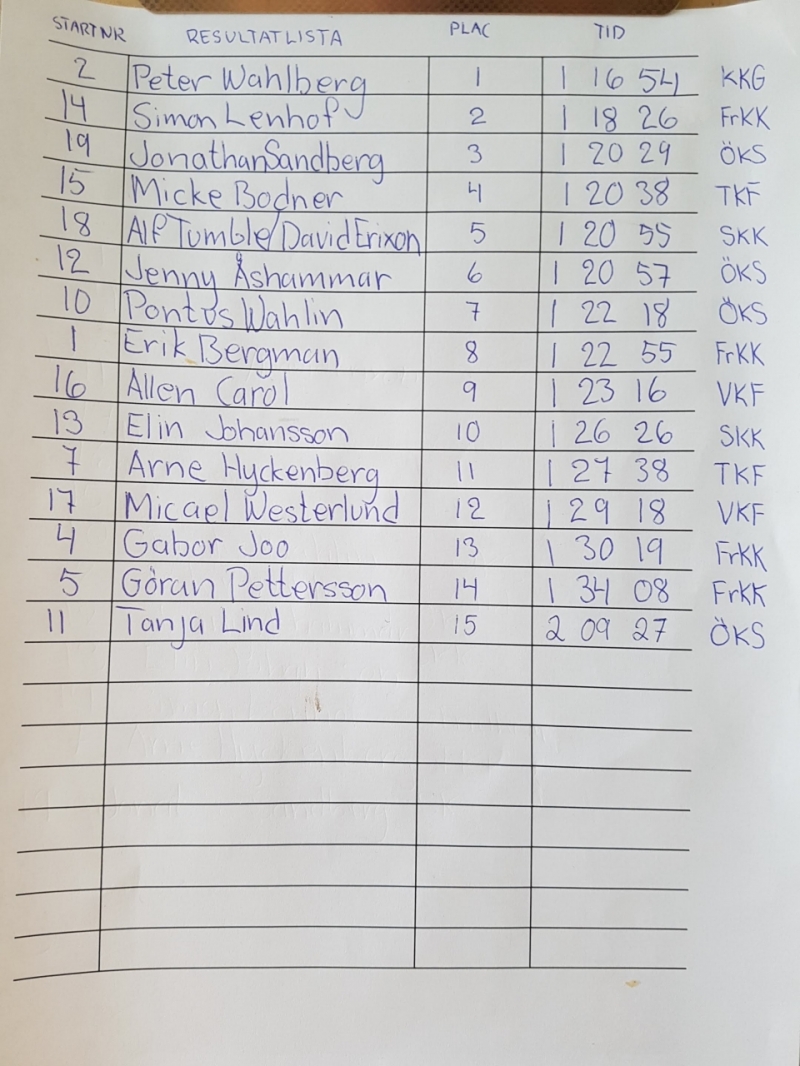 STARTNR RESULTATLISTA PLAC TID
2 Peter Wahlberg 1 1 16 54 KKG
14 Simon Lenhof 2 1 18 26 FrKK
19 Jonathan Sandberg 3 1 20 29 ÖKS
15 Micke Bodner 4 1 20 38 TKF
18 Alf Tumble/David Erixon 5 1 20 55 SKK
12 Jenny Åshammar 6 1 20 57 ÖKS
10 Pontus Wahlin 7 1 22 18 ÖKS
1 Erik Bergman 8 1 22 55 FrKK
16 Allen Carol 9 1 23 16 VKF
13 Elin Johansson 10 1 26 26 SKK
7 Arne Hyckenberg 11 1 27 38 TKF
17 Micael Westerlund 12 1 29 18 VKF
4 Gabor Joo 13 1 30 19 FrKK
5 Göran Pettersson 14 1 34 08 FrKK
11 Tanja Lind 15 2 09 27 ÖKS